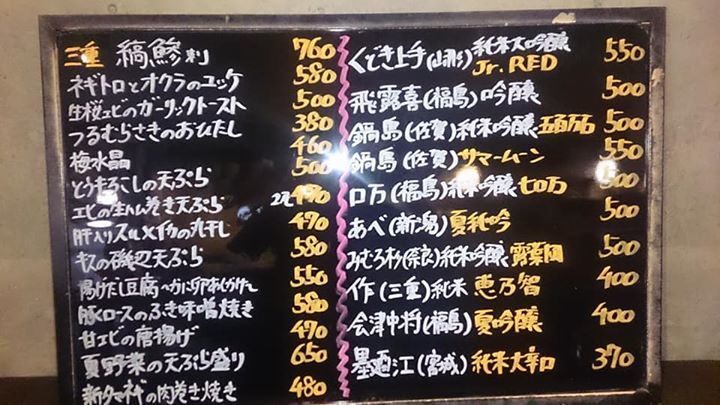 三重 縞鯵刺 760
ネギトロとオクラのユッケ 580
生桜エビのガーリックトースト 500
つるむらさきのおひたし 380
梅水晶 460
とうもろこしの天ぷら 500
エビの生ハム巻き天ぷら 2ヶ490
肝入りスルメイカの丸干し 490
キスの磯辺天ぷら 580
揚げだし豆腐〜かに卵あんかけ〜 550
豚ロースのふき味噌焼き 580
甘エビの唐揚げ 490
夏野菜の天ぷら盛り 650
新タマネギの肉巻き焼き 480
くどき上手(山形)純米大吟醸 Jr.RED 550
飛露喜(福島)吟醸 500
鍋島(佐賀)純米吟醸 五百万石 500
鍋島(佐賀)サマームーン 550
ロ万(福島)純米吟醸 七ロ万 500
あべ(新潟)夏純吟 500
みむろ杉(奈良)純米吟醸 露葉風 500
作(三重)純米 恵乃智 400
会津中将(福島)夏吟醸 400
墨廼江(宮城)純米大辛口 370